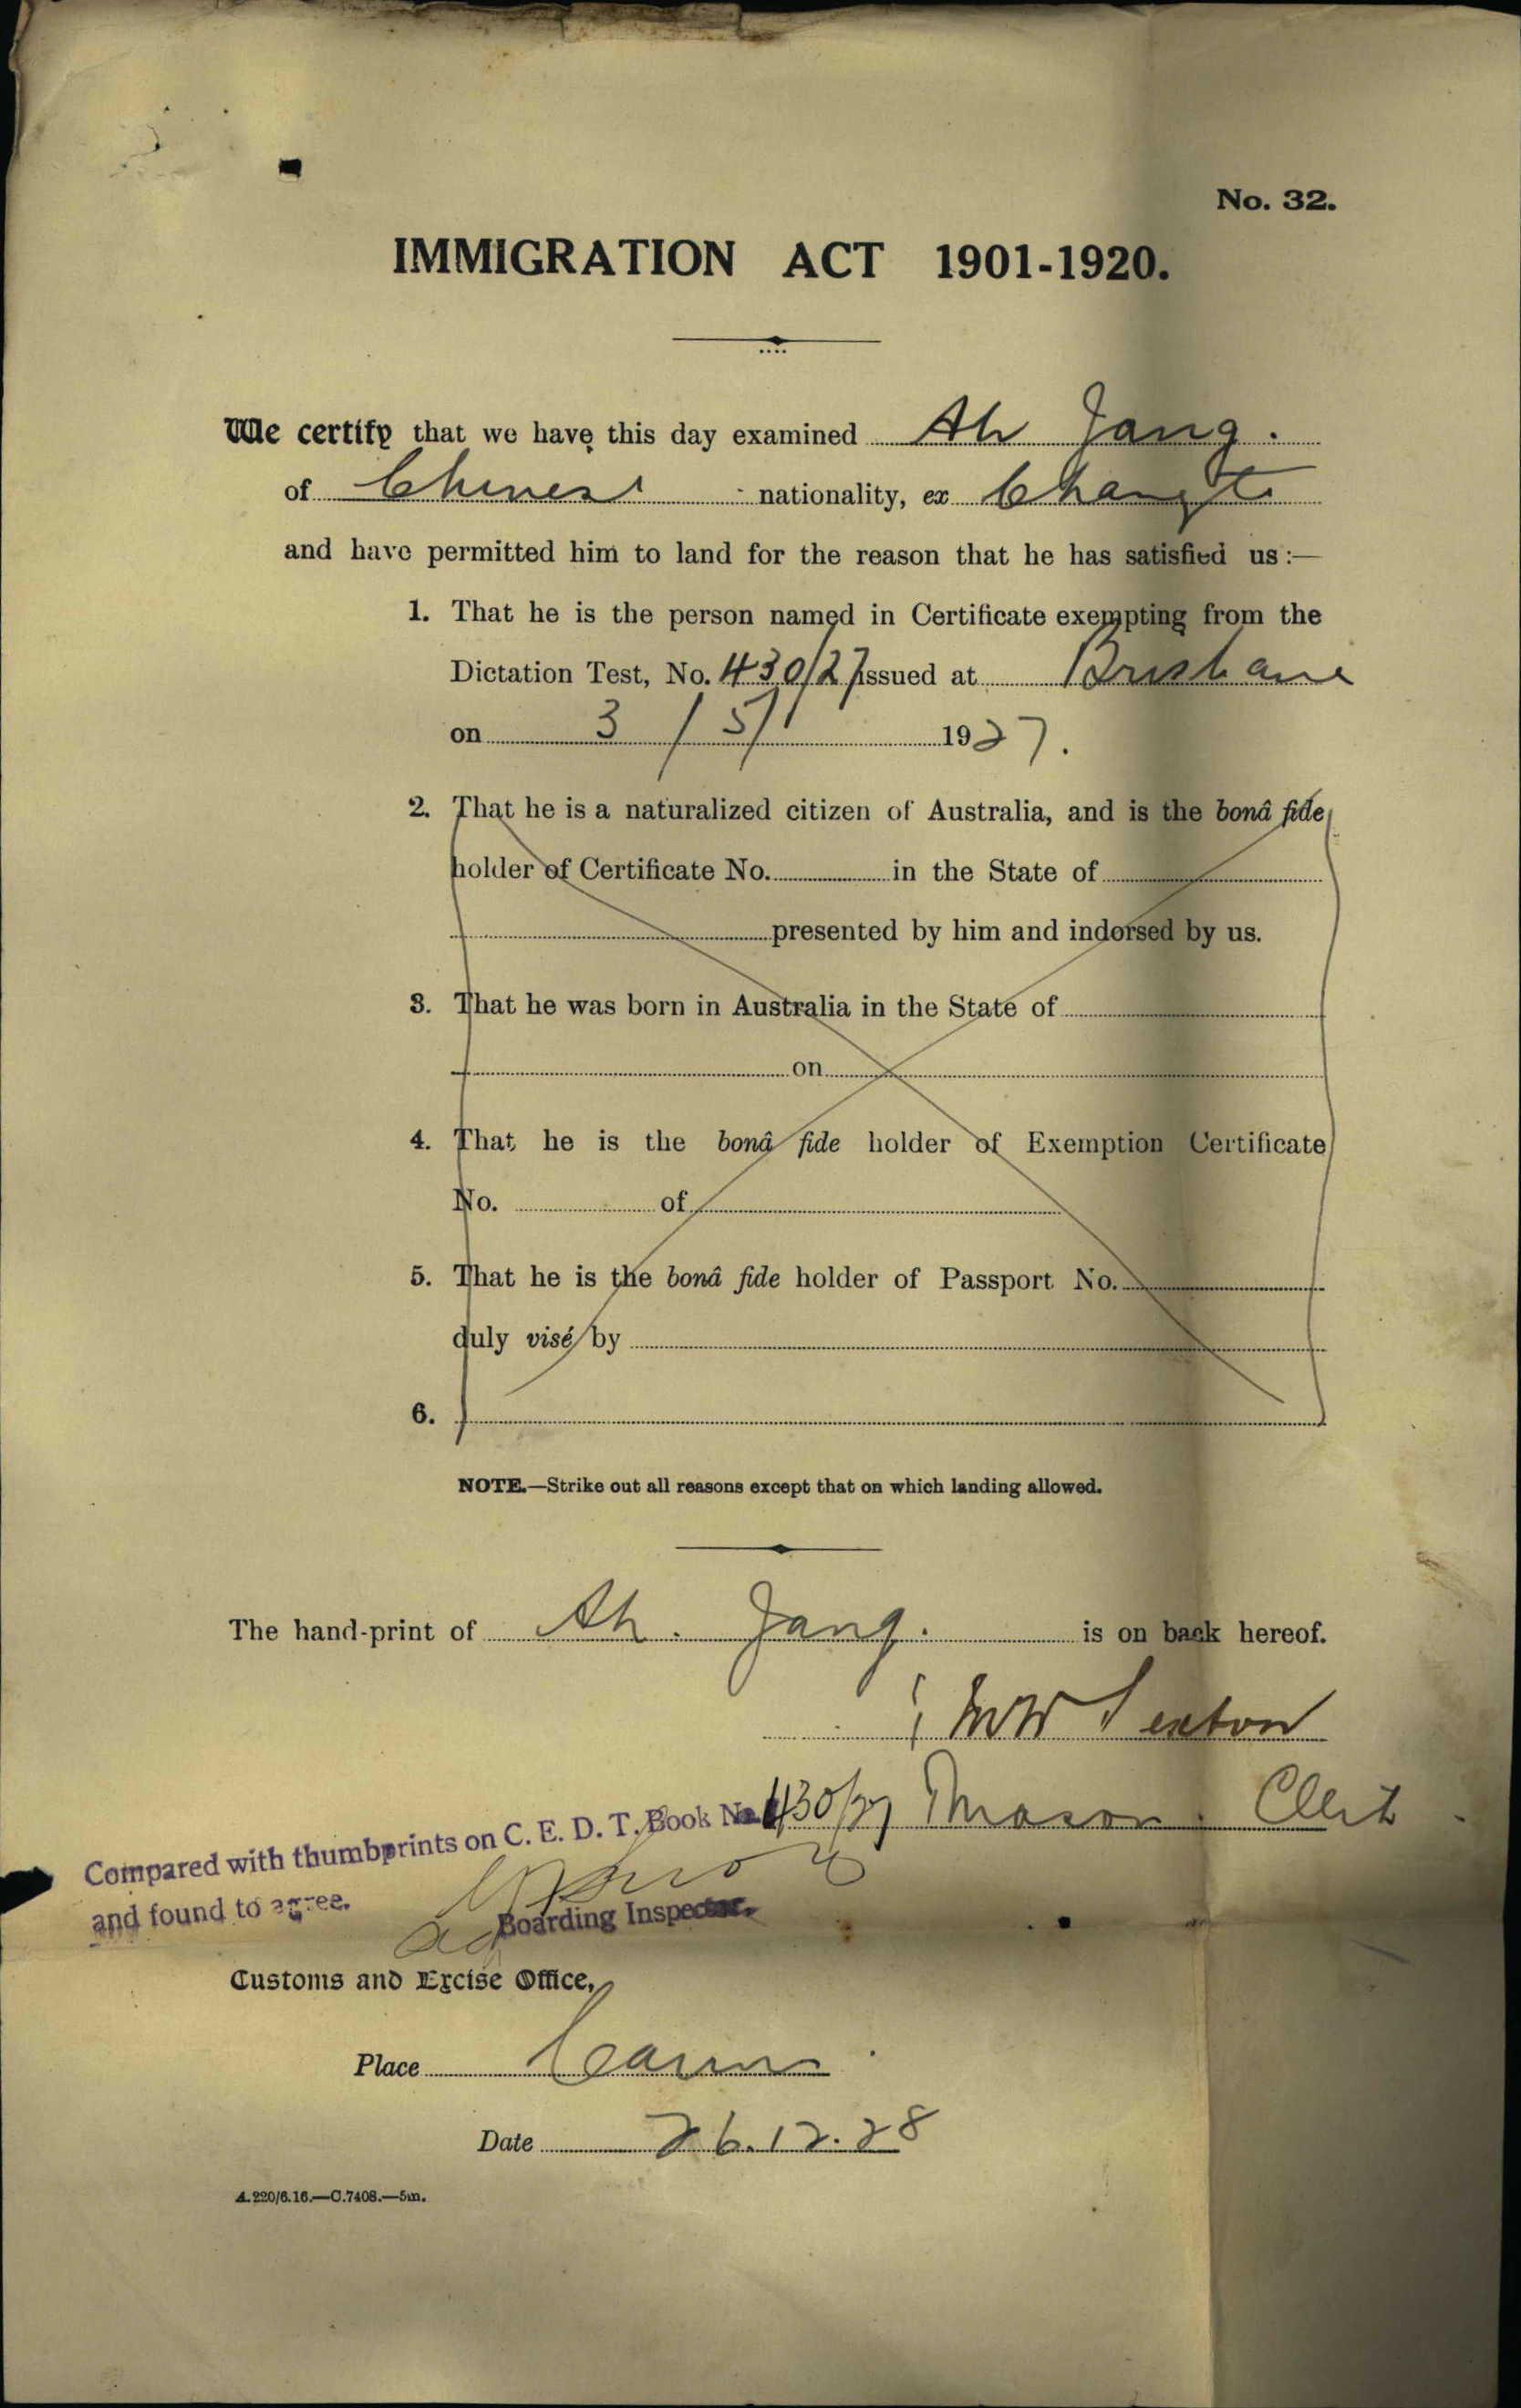 No. 32.
IMMIGRATION ACT 1901-1920.
We certify that we have this day examined Ah Jang.
of Chinese nationality, ex Changte
and have permitted him to land for the reason that he has satisfied us :—
1. That he is the person named in Certificate exempting from the
Dictation Test, No. 430/27 issued at Brisbane
on 3/5/ 1927.
2. That he is a naturalized citizen of Australia, and is the bonâ fide
holder of Certificate No. in the State of
presented by him and indorsed by us.
3. That he was born in Australia in the State of
on
4. That he is the bonâ fide holder of Exemption Certificate
No. of
5. That he is the bonâ fide holder of Passport No.
duly visé by
6.
NOTE.—Strike out all reasons except that on which landing allowed.
The hand-print of Ah. Jang. is on back hereof.
Sexton
Compared with thumbprints on C. E. D. T. Book No. 430/27 Mason. Clerk
and found to agree.
Boarding Inspector.
Customs and Excise Office,
Place Cairns
Date 26.12.28
A.220/6.16.—C.7408.—5m.